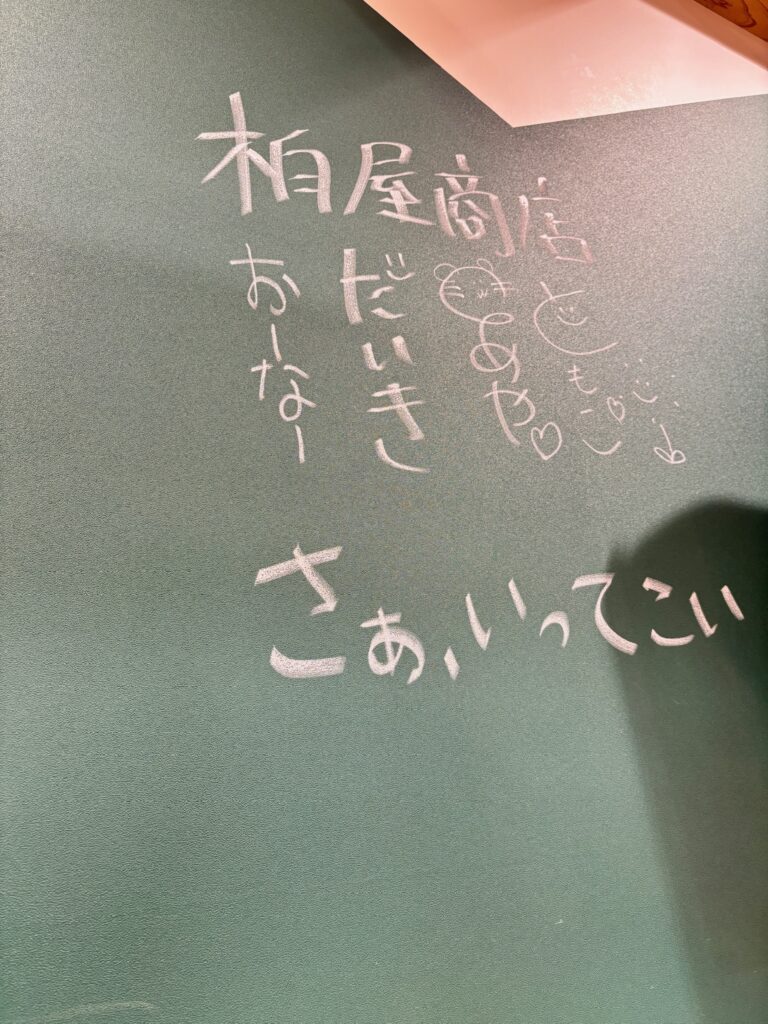 柏屋商店
おーなー
だいき
あや♡
ともこ
さぁ、いってこい